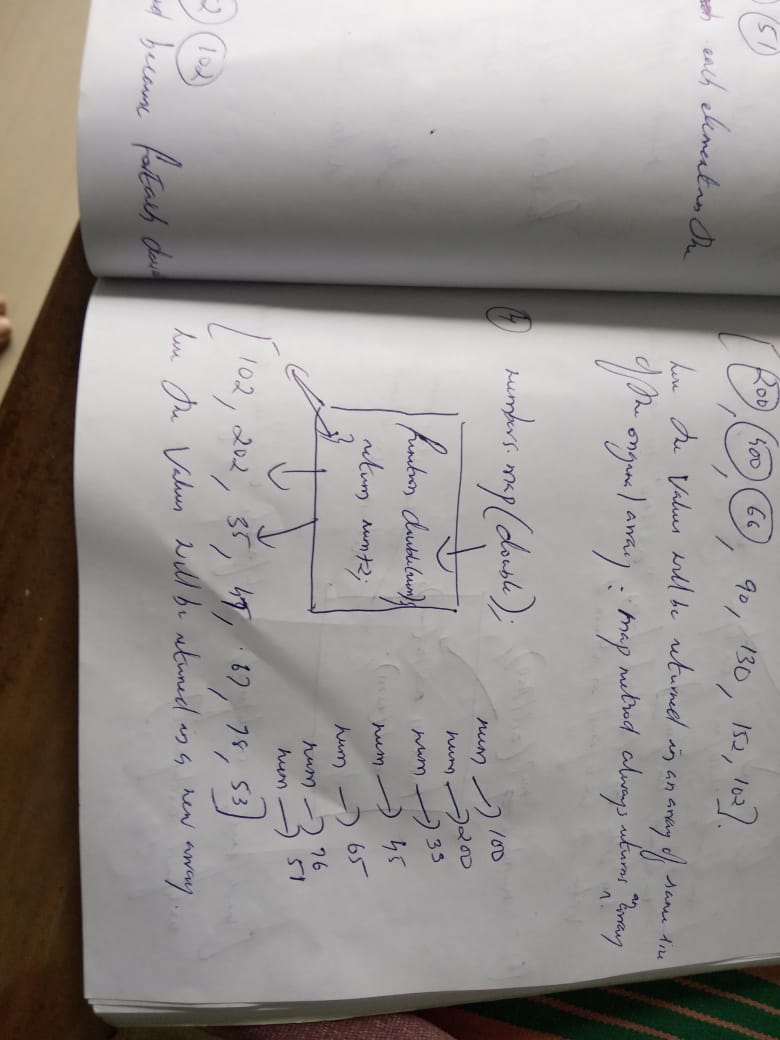 51
each element in the
102
because forEach does
[200, 400, 66, 90, 130, 152, 102].
here the values will be returned in an array of same size
of the original array ∵ map method always returns an array
4 numbers.map(double);
function double(num){
return num+2;
}
num → 100
num → 200
num → 33
num → 45
num → 65
num → 76
num → 51
[102, 202, 35, 47, 67, 78, 53]
here the values will be returned in a new array.